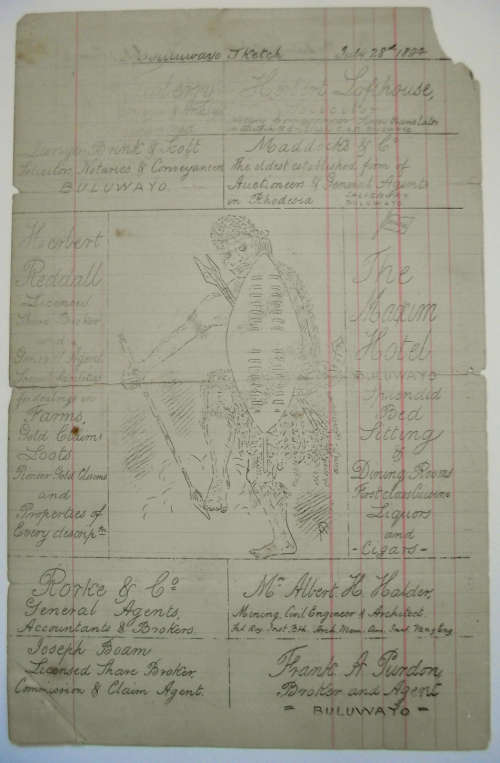 Buluwayo Sketch July 28th 1894
Herbert Lofthouse,
Solicitor
Sworn Translator
Brink & Scott
Solicitors Notaries & Conveyancers
BULUWAYO.
Maddocks & Co
The oldest established firm of
Auctioneers & General Agents
in Rhodesia
BULUWAYO
Herbert
Redvall
Licensed
Share Broker
and
General Agent
for dealings in
Farms,
Gold Claims
Loots
Pioneer Gold Claims
and
Properties of
Every descriptn
The
Maxim
Hotel
BULUWAYO
Splendid
Bed
Sitting
&
Dining Rooms
First class Cuisine
Liquors
and
- Cigars -
Rorke & Co
General Agents,
Accountants & Brokers.
Mr Albert H. Halder,
Mining, Civil Engineer & Architect.
Joseph Boam
Licensed Share Broker
Commission & Claim Agent.
Frank A Purdon
Broker and Agent
= BULUWAYO =